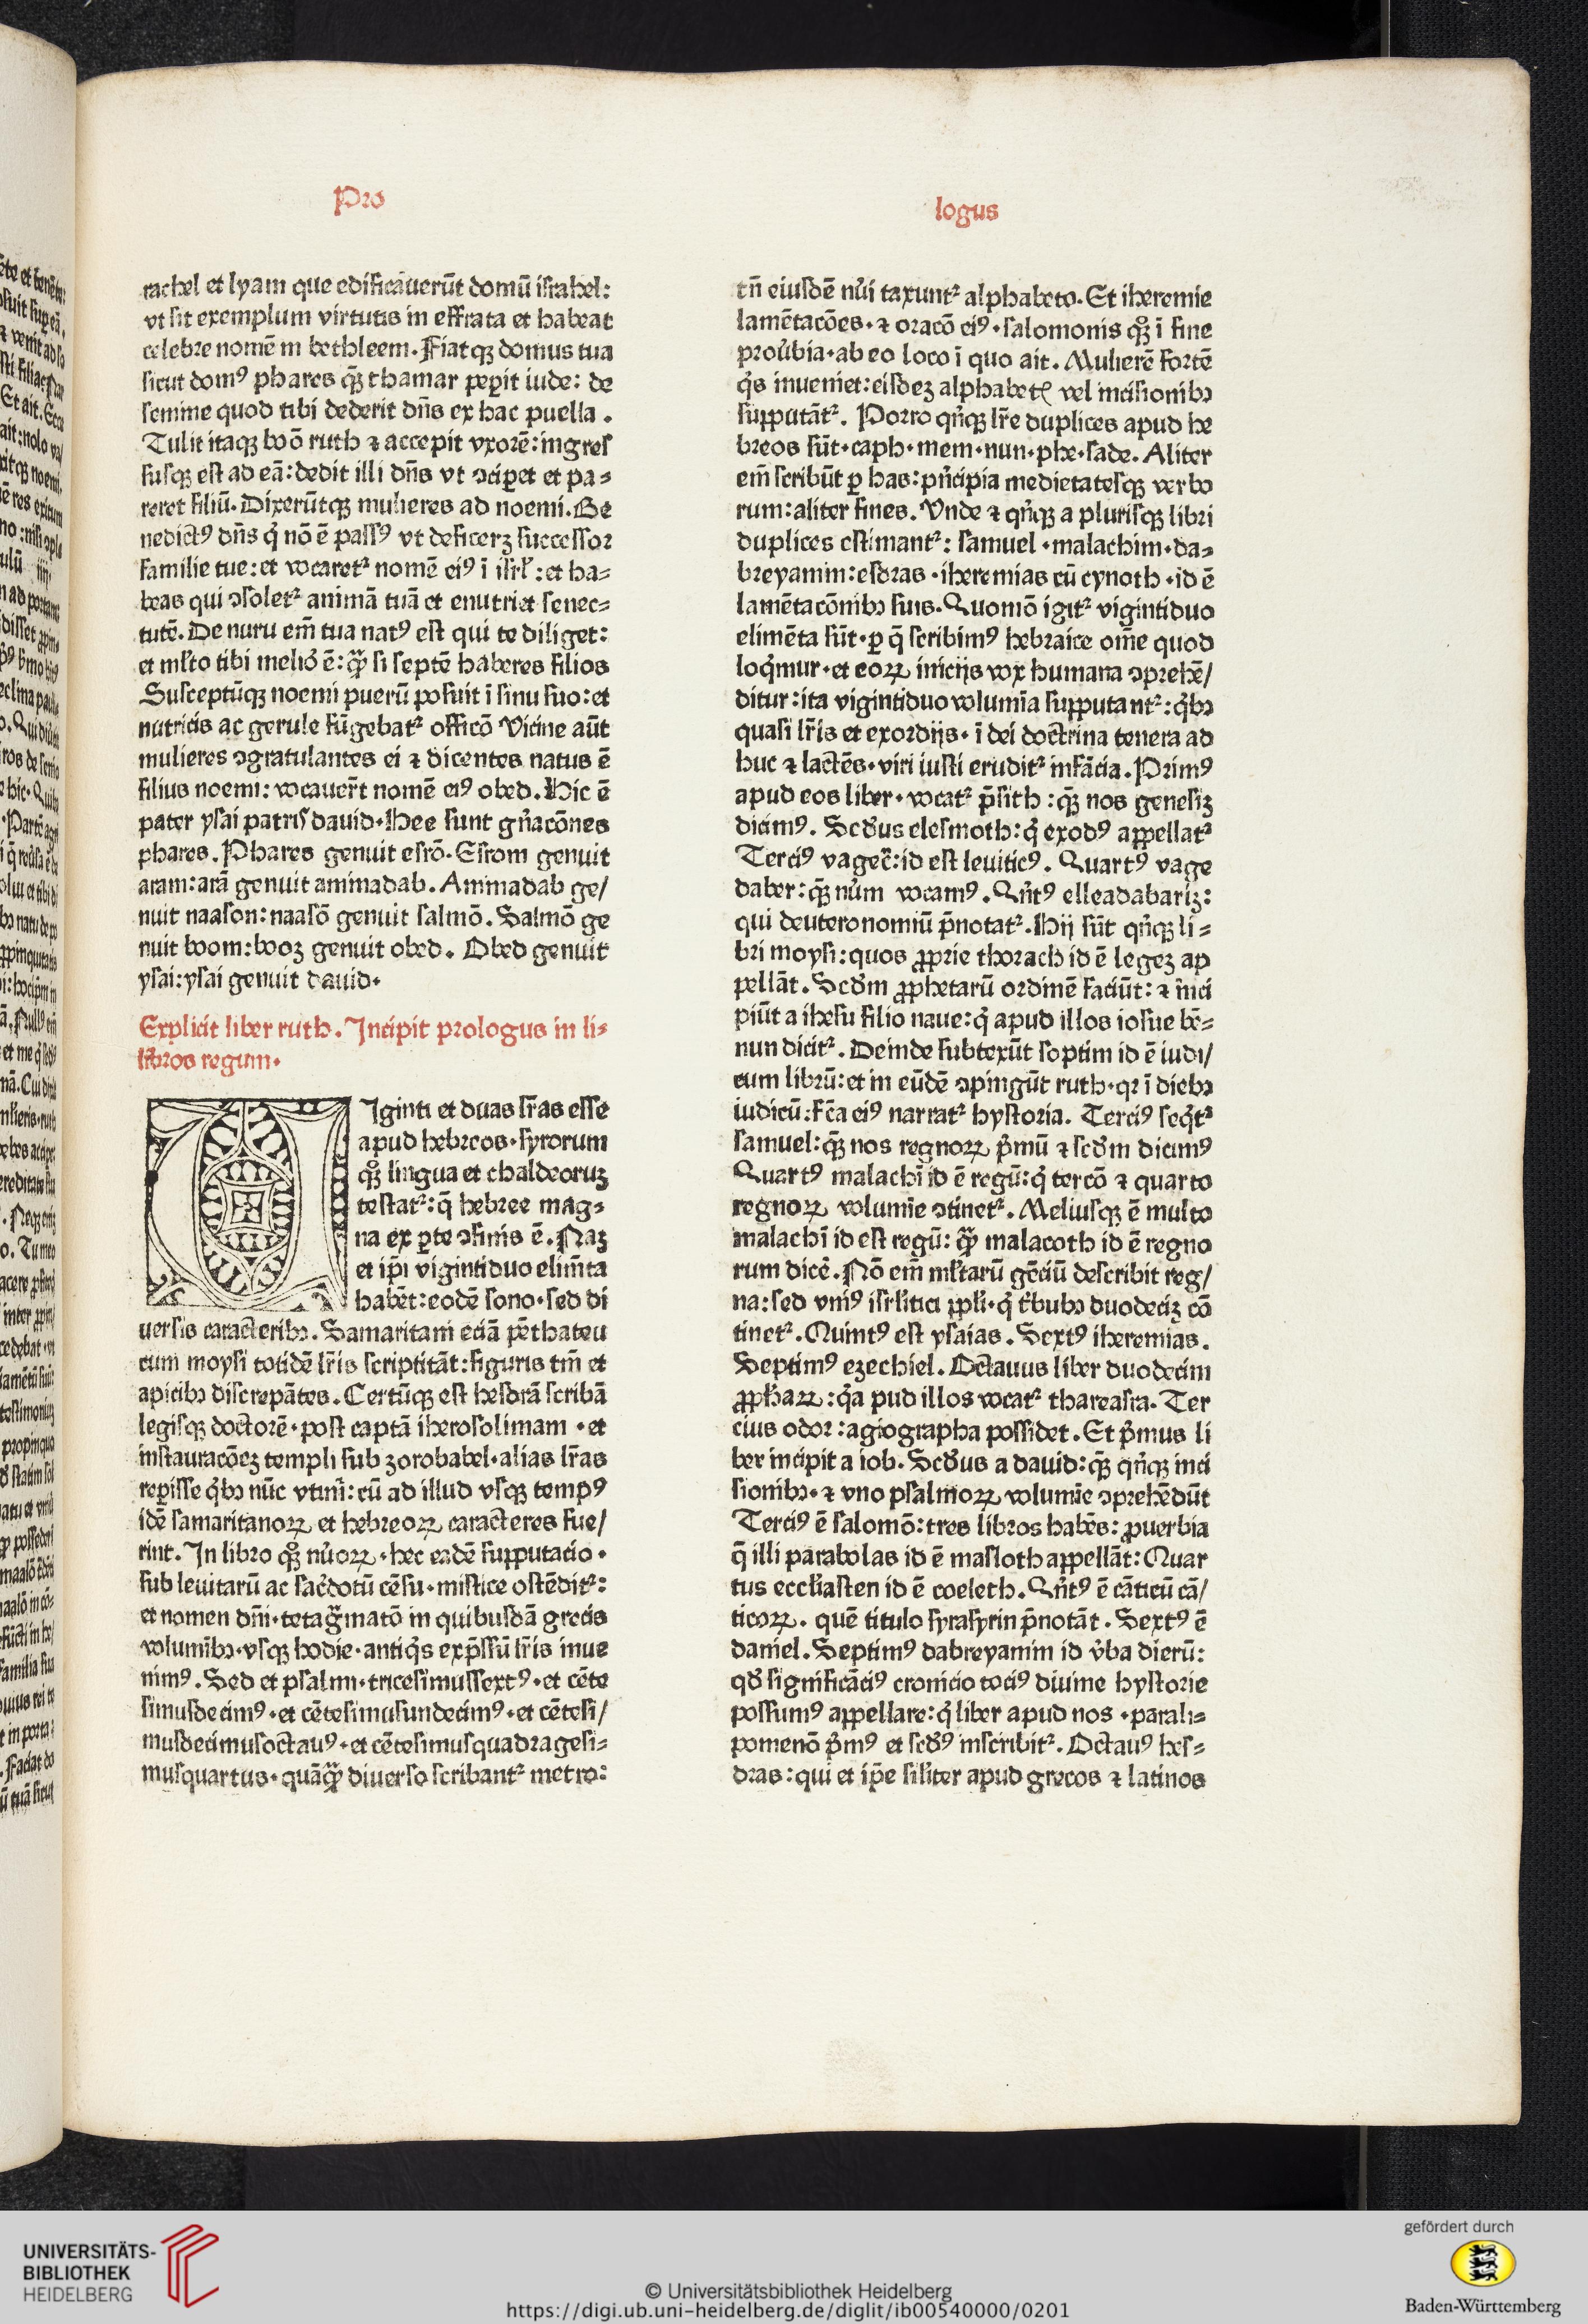 Pro
logus
rachel et lyam que edificāuerūt domū iſrahel:
vt ſit exemplum virtutis in effrata et habeat
celebre nomē in bethleem. Fiatqꝫ domus tua
ſicut domꝰ phares qꝫ̄ thamar peꝑit iude: de
ſemine quod tibi dederit dn̄s ex hac puella.
Tulit itaqꝫ boō ruth ⁊ accepit vxorē: ingreſ
ſuſqꝫ eſt ad eā: dedit illi dn̄s vt ↄciꝑet et pa⸗
reret filiū. Dixerūtqꝫ mulieres ad noemi. Be
nedictꝰ dn̄s q̇ nō ē paſſꝰ vt deficerꝫ ſucceſſor
familie tue: et vocaretᷣ nomē eiꝰ ī iſrl̓: et ha⸗
beas qui ↄſoletᷣ animā tuā et enutriet ſenec⸗
tutē. De nuru em̄ tua natꝰ eſt qui te diliget:
et ml̓to tibi melio᷒ ē: qꝫ̄ ſi ſeptē haberes filios
Suſceptūqꝫ noemi puerū poſuit ī ſinu ſuo: et
nutricis ac gerule fūgebatᷣ officō Vicine aūt
mulieres ↄgratulantes ei ⁊ dicentes natus ē
filius noemi: vocauer̄t nomē eiꝰ obed. Hic ē
pater yſai patriſ dauid. Hee ſunt gn̄acōnes
phares. Phares genuit eſrō. Eſrom genuit
aram: arā genuit aminadab. Aminadab ge/
nuit naaſon: naaſō genuit ſalmō. Salmō ge
nuit boom: booꝫ genuit obed. Obed genuit
yſai: yſai genuit dauid.
Explicit liber ruth. Incipit prologus in li⸗
libros regum.
VIginti et duas lr̄as eſſe
apud hebreos. ſyrorum
qꝫ̊ lingua et chaldeoruꝫ
teſtatᷣ: q̄ hebree mag⸗
na ex ꝑte ↄfinis ē. Naꝫ
et ip̄i vigintiduo elim̄ta
habēt: eodē ſono. ſed di
uerſis caracteribꝫ. Samaritani eciā pēthateu
cum moyſi totidē lr̄is ſcriptitāt: figuris tm̄ et
apicibꝫ diſcrepātes. Certūqꝫ eſt heſdrā ſcribā
legiſqꝫ doctorē. poſt captā iheroſolimam. et
inſtauracōeꝫ templi ſub ꝫorobabel. alias lr̄as
reꝑiſſe q̇bꝫ nūc vtim̄: cū ad illud vſqꝫ tempꝰ
idē ſamaritanoꝝ et hebreoꝝ caracteres fue/
rint. In libro qꝫ̊ nu̓oꝝ. hec eadē ſupputacio.
ſub leuitarū ac ſac̓dotū cēſu. miſtice oſtēditᷣ:
et nomen dn̄i. tetagͣmatō in quibuſdā grecis
volumīꝫ. vſqꝫ hodie. antiq̇s exp̄ſſū lr̄is inue
nimꝰ. Sed et pſalmi. triceſimuſſextꝰ. et cēte
ſimuſdecimꝰ. et cēteſimuſundecimꝰ. et cēteſi/
muſdecimuſoctauꝰ. et cēteſimuſquadrageſi⸗
muſquartus. quāqꝫ̄ diuerſo ſcribantᷣ metro:
tn̄ eiuſdē nu̓i taxuntᷣ alphabeto. Et iheremie
lamētacōes. ⁊ oracō eiꝰ. ſalomonis qꝫ̊ ī fine
prou̓bia. ab eo loco ī quo ait. Mulierē fortē
q̇s inueniet: eiſdeꝫ alphabetꝭ vel inciſionibꝫ
ſupputātᷣ. Porro qn̄qꝫ lr̄e duplices apud he
breos ſūt. caph. mem. nun. phe. ſade. Aliter
em̄ ſcribūt ꝑ has: pn̓cipia medietateſqꝫ verbo
rum: aliter fines. Vnde ⁊ qn̄qꝫ a pluriſqꝫ libri
duplices eſtimantᷣ: ſamuel. malachim. da⸗
breyamin: eſdras. iheremias cū cynoth. id ē
lamētacōnibꝫ ſuis. Quomō igitᷣ vigintiduo
elimēta ſūt. ꝑ q̄ ſcribimꝰ hebraice om̄e quod
loq̇mur. et eoꝝ iniciis vox humana ↄprehē/
ditur: ita vigintiduo volumīa ſupputantᷣ: q̇bꝫ
quaſi lr̄is et exordijs. ī dei doctrina tenera ad
huc ⁊ lactēs. viri iuſti eruditᷣ infācia. Primꝰ
apud eos liber. vocatᷣ p̄ſith: qꝫ̄ nos geneſiꝫ
dicimꝰ. Scd̓us eleſmoth: q̇ exodꝰ appellatᷣ
Terciꝰ vagec̄: id eſt leuiticꝰ. Quartꝰ vage
daber: qꝫ̄ nu̓m vocamꝰ. Qn̄tꝰ elleadabariꝫ:
qui deuteronomiū p̄notatᷣ. Hij ſūt qn̄qꝫ li⸗
bri moyſi: quos ꝓprie thorach id ē legeꝫ ap
pellāt. Scd̓m ꝓphetarū ordinē faciūt: ⁊ īnci
piūt a iheſu filio naue: q̇ apud illos ioſue bē⸗
nun dicitᷣ. Deinde ſubtexūt ſoptim id ē iudi/
cum librū: et in eūdē ↄpingūt ruth. qr ī diebꝫ
iudicū: fc̄a eiꝰ narratᷣ hyſtoria. Terciꝰ ſeq̇tᷣ
ſamuel: qꝫ̄ nos regnoꝝ p̓mū ⁊ ſcd̓m dicimꝰ
Quartꝰ malachī id ē regū: q̇ tercō ⁊ quarto
regnoꝝ volumīe ↄtinetᷣ. Meliuſqꝫ ē multo
malachī id eſt regū: qꝫ̄ malacoth id ē regno
rum dicē. Nō em̄ ml̓tarū gēciū deſcribit reg/
na: ſed vniꝰ iſrl̓itici ꝓpl̓i. q̇ t̓bubꝫ duodeciꝫ cō
tinetᷣ. Quintꝰ eſt yſaias. Sextꝰ iheremias.
Septimꝰ eꝫechiel. Octauus liber duodecim
ꝓph̓aꝝ: q̇a pud illos vocatᷣ thareaſra. Ter
cius odor: agiographa poſſidet. Et p̓mus li
ber incipit a iob. Scd̓us a dauid: qꝫ̄ qn̄qꝫ inci
ſionibꝫ. ⁊ vno pſalmoꝝ volumīe ↄprehēdūt
Terciꝰ ē ſalomō: tres libros habēs: ꝓuerbia
q̄ illi parabolas id ē maſloth appellāt: Quar
tus eccl̓iaſten id ē coeleth. Qn̄tꝰ ē cāticū cā/
ticoꝝ. quē titulo ſyraſyrin p̄notāt. Sextꝰ ē
daniel. Septimꝰ dabreyamin id v̓ba dierū:
qd̓ ſignificāciꝰ cronicio tociꝰ diuine hyſtorie
poſſumꝰ appellare: q̇ liber apud nos. parali⸗
pomenō p̓mꝰ et ſcd̓ꝰ inſcribitᷣ. Octauꝰ heſ⸗
dras: qui et ip̄e ſil̓iter apud grecos ⁊ latinos
UNIVERSITÄTS-
BIBLIOTHEK
HEIDELBERG
© Universitätsbibliothek Heidelberg
https://digi.ub.uni-heidelberg.de/diglit/ib00540000/0201
gefördert durch
Baden-Württemberg